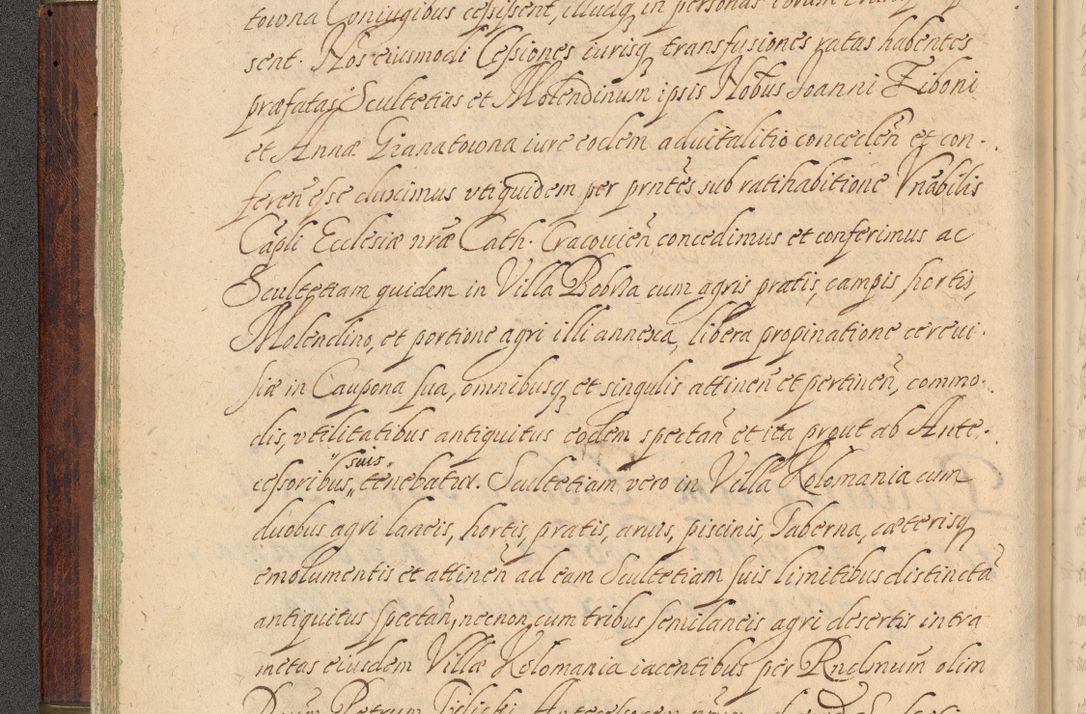 towna Coniugibus cessissent, illudq in personas
sent. Nos eiusmodi Cessiones iurisq transfusiones ratas habentes
præfatas Scultetias et Molendinum ipsis Nobus Joanni Ziboni
et Annæ Granatowna iure eodem aduitalitio conceden et con-
feren esse duximus vtiquidem per pntes sub ratihabitione Vnabilis
Capli Ecclesiæ nræ Cath. Cracouien concedimus et conferimus ac
Scultetiam quidem in Villa Bobrza cum agris pratis, campis, hortis,
Molendino, et portione agri illi annexa, libera propinatione cereui-
siæ in Caupona sua, omnibusq et singulis attinen et pertinen, commo-
dis, vtilitatibus antiquitus eodem spectan et ita prout ab Ante-
cessoribus suis tenebatur. Scultetiam vero in Villa Kolomania cum
duobus agri laneis, hortis, pratis, aruis, piscinis, Taberna, cæterisq
emolumentis et attinen ad eam Scultetiam suis limitibus distincta
antiquitus spectan, necnon cum tribus semilaneis agri desertis intra
metas eiusdem Villæ Kolomania iacentibus per Rndmum olim
Dnum Petrum Tilicki Antecessorem